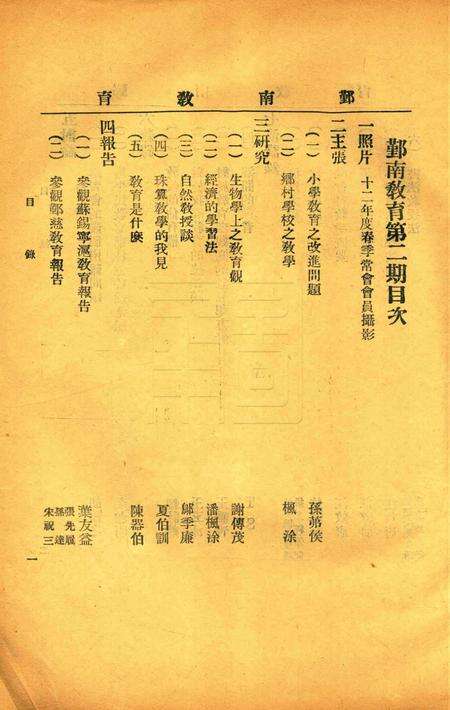 鄞南教育
鄞南教育第二期目次
一照片 十二年度春季常會會員攝影
二主張
(一) 小學教育之改進問題 孫苐侯
(二) 鄉村學校之教學 楓涂
三研究
(一) 生物學上之教育觀 謝傳茂
(二) 經濟的學習法 潘楓涂
(三) 自然教授談 鄔季廉
(四) 珠算教學的我見 夏伯訓
(五) 教育是什麽 陳器伯
四報告
(一) 參觀蘇錫寧滬教育報告 葉友益
(二) 參觀鄮慈教育報告 張先履 孫達 宋祝三
目錄 一